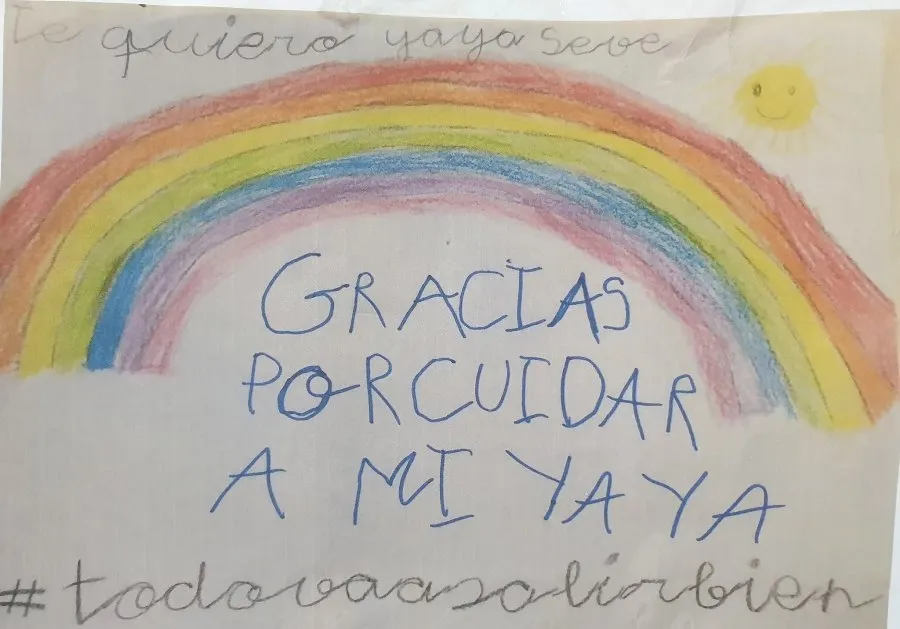 Te quiero yaya Seve
GRACIAS
POR CUIDAR
A MI YAYA
#todovaasalirbien